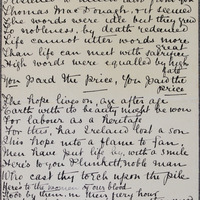 Thomas MacDonagh, it denied
The words were idle but they paid
To nobleness, by death redeemed
Life cannot utter words more great
Than life can meet with sacrifice,
High words were equalled by high fate
You paid the price, You paid the price
The hope lives on age after age
Earth with its beauty might be won
For labour as a heritage
For this, has Ireland lost a son
This hope into a flame to fan
Men have put life by with a smile
Here's to you Plunkett, noble man
Who cast this torch upon the pile
Here's to the women of our blood
Stood by them in their fiery hour